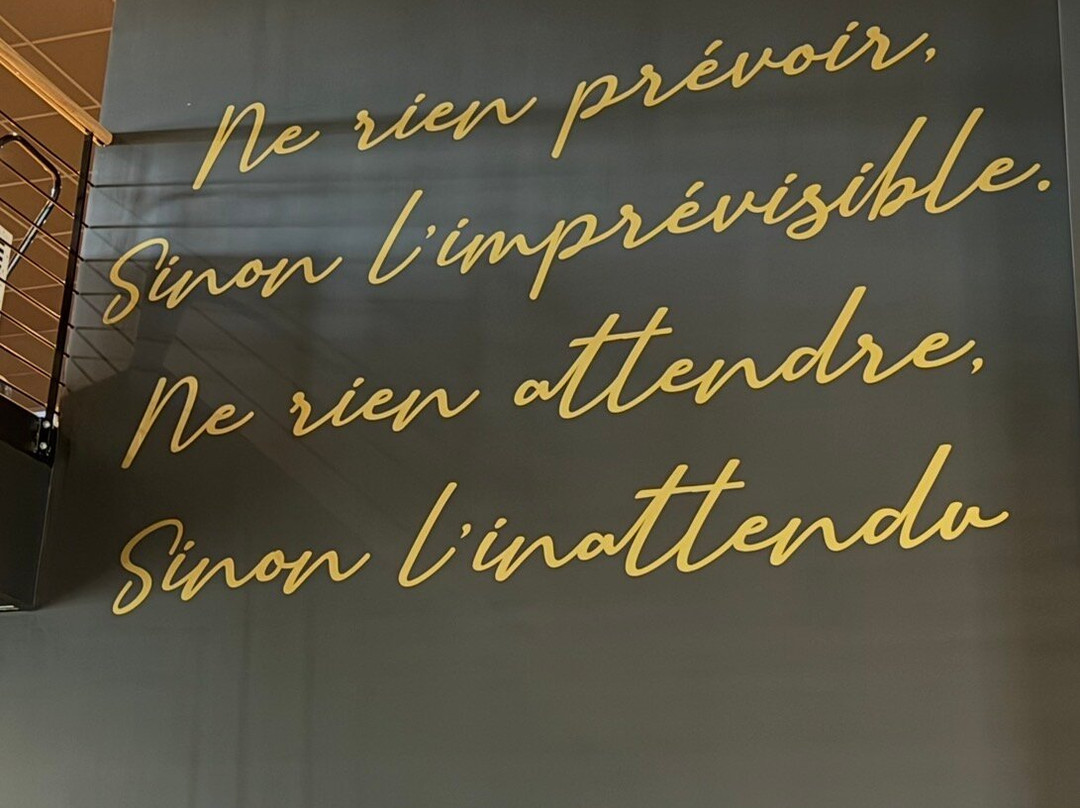 Ne rien prévoir,
Sinon l'imprévisible.
Ne rien attendre,
Sinon l'inattendu